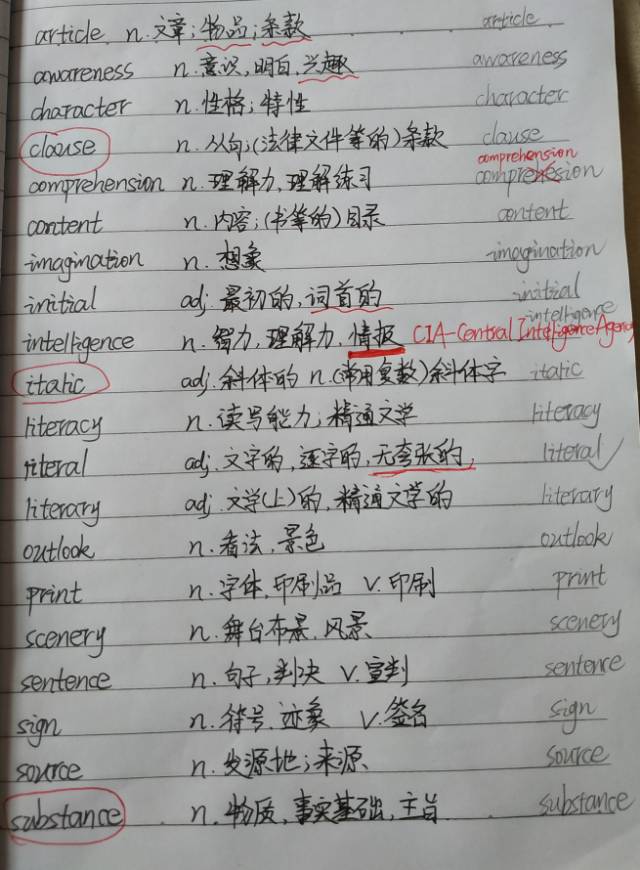 article n. 文章; 物品; 条款 article
awareness n. 意识, 明白, 兴趣 awareness
character n. 性格; 特性 character
clause n. 从句; (法律文件等的) 条款 clause
comprehension
comprehension n. 理解力, 理解练习
content n. 内容; (书等的) 目录 content
imagination n. 想象 imagination
initial adj. 最初的, 词首的 initial
intelligence
intelligence n. 智力, 理解力, 情报 CIA-Central Intelligence Agency
italic adj. 斜体的 n. (常用复数) 斜体字 italic
literacy n. 读写能力; 精通文学 literacy
literal adj. 文字的, 逐字的, 无夸张的, literal
literary adj. 文学(上)的, 精通文学的 literary
outlook n. 看法, 景色 outlook
print n. 字体, 印刷品 v. 印刷 print
scenery n. 舞台布景, 风景 scenery
sentence n. 句子, 判决 v. 宣判 sentence
sign n. 符号, 迹象 v. 签名 sign
source n. 发源地; 来源 source
substance n. 物质, 事实基础, 主旨 substance